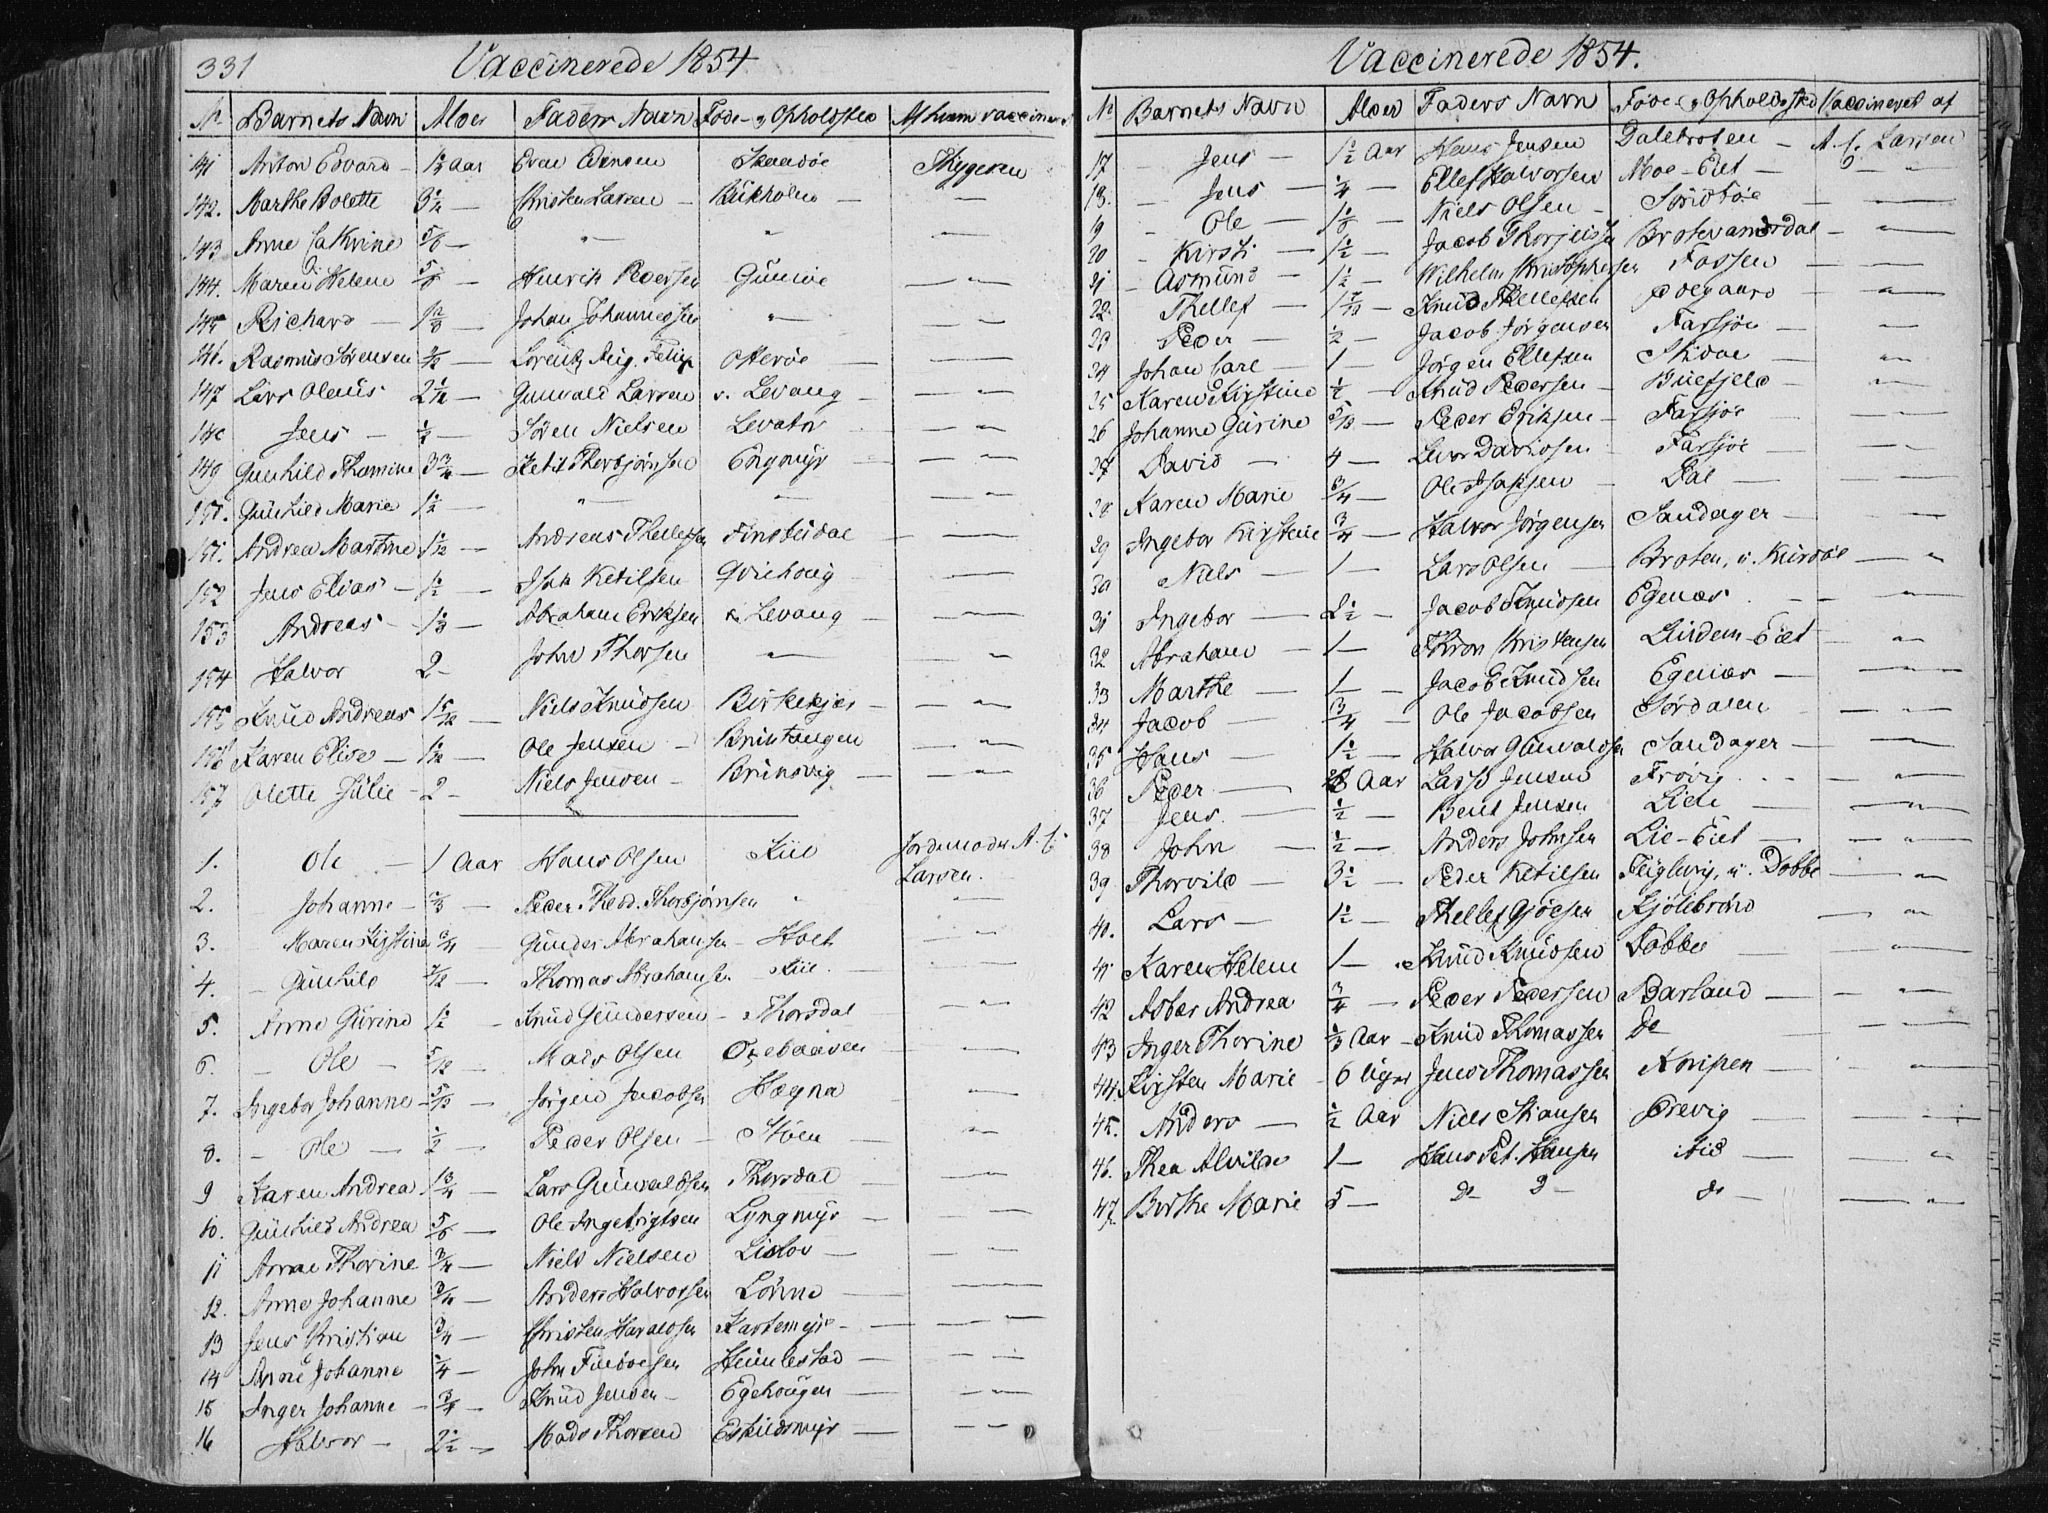 331 Vaccinerede 1854
Nr Barnets Navn Alder Faders Navn Føde- og Opholdsted Af hvem vaccineret
141 Anton Edvard - 1 1/3 Aar Even Evensen Skaadøe Thygesen
142. Marthe Bolette 3 1/2 — Christen Larsen - Birkholm — — " —
143 Anne Cathrine 5/6 — " "
144. Maren Helene 5/8 — Henrich Pedersen Gumøe — " —
145 Richard — Johan Johannessen " — " —
146. Rasmus Sørensen Lorentz Aug. Otterøe — — " —
147 Lars Olaus 2 1/2 — Gunvald Larsen v. Levang — — " —
148 Jens — 1/2 — Søren Nielsen Levatn — " —
149 Gunhild Thomine 3 3/4 — Ketil Thorbjørnsen Engmyr — — " —
150. Gunhild Marie 1 1/2 — " " — " —
151. Andrea Martine 1 1/12 — Andreas Thellefsen Finstudal — — " —
152 Jens Elias — 1 1/2 — Isak Ketilsen — — " —
153 Andreas — 1 1/3 — Abraham Eriksen v. Levang — — " —
154 Halvor 2 — John Thorsen " — " —
155 Knud Andreas 1 5/12 — Niels Knudsen Birkekjær — — " —
156 Karen Elise — — Ole Jensen — — " —
157 Olette Julie — 2 — Niels Jensen — Brunsvig — — " —
1. Ole — 1 Aar Hans Olsen Kiil Jordemoder A. C. Larsen.
2. Johanne — 2/3 — Peder Theod. Thorbjørnsen " — " —
3. Maren Kirstine 3/4 — Gunder Abrahamsen — Holt — " —
4. — Gunhild 7/12 — Thomas Abrahamsen Kiil. — " —
5. Anne Gurine 1 1/2 — Knud Gundersen — Thorsdal — " —
6. — Ole — 5/12 — Mads Olsen — " —
7. Ingebor Johanne — 5/12 — Jørgen Jacobsen Hægna — " —
8. — Ole — 1/2 — Peder Olsen — Støen — " —
9 Karen Andrea 1 3/4 — Lars Gunvaldsen Thorsdal — — " —
10. Gunhild Andrea 5/6 — Ole Ingebrigtsen Lyngmyr — — " —
11 Anne Thorine 3/4 — Niels Nielsen — — " —
12. Anne Johanne 3/4 — Anders Halvorsen Lønne — — " —
13 Jens Kristian 3/4 — Christen Haraldsen — — " —
14 Anne Johanne 1/4 — John — — " —
15 Inger Johanne — 3/4 — Knud Jensen — Egehougen — — " —
16 Halvor — 2 1/2 — Mads Thorsen Eskildsmyr — — " —
Vaccinerede 1854.
Nr Barnets Navn Alder Faders Navn Føde- og Opholdssted Vaccineret af
17 — Jens — 1 1/2 Aar Hans Jensen Dalebroten — A. C. Larsen
18. — Jens — 1/4 — Ellef Halvorsen Moe-Eiet — — " —
19 — Ole — Niels Olsen — — — " —
20 — Kirsti — 1 1/2 — Jacob — — " —
21 — Asmund — 1 1/2 — Wilhelm Kristophersen Fossen — — " —
22. Thellef — Knud Thellefsen Ødegaard — — " —
23 Peder — 1/2 — Jacob Jørgensen Farsjøe — — " —
24 Johan Carl — 1 — Jørgen Ellefsen — — " —
25 Karen Kirstine 1/2 — Knud Pedersen — Buefjeld — — " —
26 Johanne Gurine 5/12 — Peder Eriksen — Farsjøe — — " —
27 David — 4 — Davidsen — Farsjøe — — " —
28 Karen Marie 3/4 — Ole Isaksen — Dal — — " —
29 Ingebor Kirstine 3/4 — Halvor Jørgensen Sandager — — " —
30 Niels — 1 — Lars Olsen — Broten, — " —
31 Ingebor — 2 1/2 — Jacob Knudsen Egenæs — — " —
32 Abraham — 1 — Thron Kristensen Lindem-Eiet — — " —
33 Marthe — 1 — Jacob Knudsen Egenæs — — " —
34 Jacob — 3/4 — Ole Jacobsen Sørdalen — — " —
35 Hans — 1 1/2 — Halvor Gunvaldsen Sandager — — " —
36 Peder — Aar Lars Jensen Frøvig — — " —
37 Jens — 1/2 — Bent Jensen Lien — — " —
38 John — 1/2 — Anders Johnsen Lie-Eiet — — " —
39 Thorvild — 3 1/2 — Peder Ketilsen Dobbe — " —
40. Lars — 1 1/2 — Thellef Gjøesen Kjølebrønd — " —
41 Karen Helene 1 — Knud Knudsen Dobbe — " —
42 Asbør Andrea 3/4 — Peder Pedersen Barland — — " —
43 Inger Thorine 1/3 Aar — Knud Thomassen do — " —
44 Kirsten Marie — 6 Uger Jens Thomassen Knipen — — " —
45. Anders — 1/2 Aar Niels Hansen Crevig — — " —
46. Thea Alvilde 1 — Hans Pet. Hansen — — " —
47. Birthe Marie 5 — do do — do — — " —